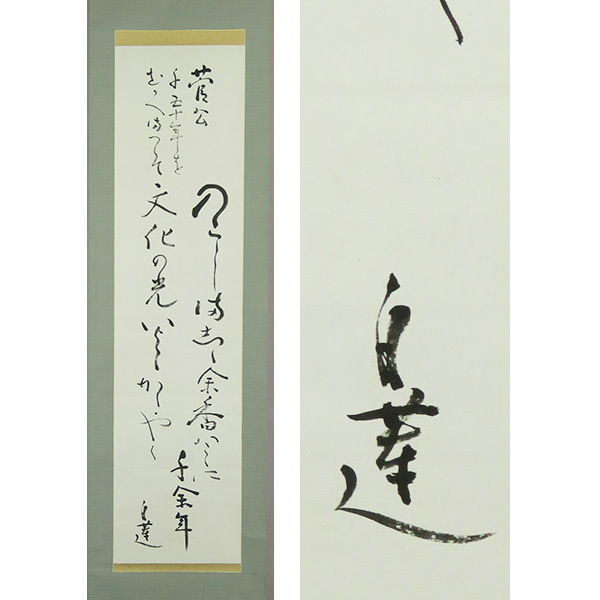 菅公
千五十年を
むかへまつりて
のこしましゝ余香はこゝに
千余年
文化の光いよゝかゝやく
白蓮
白蓮